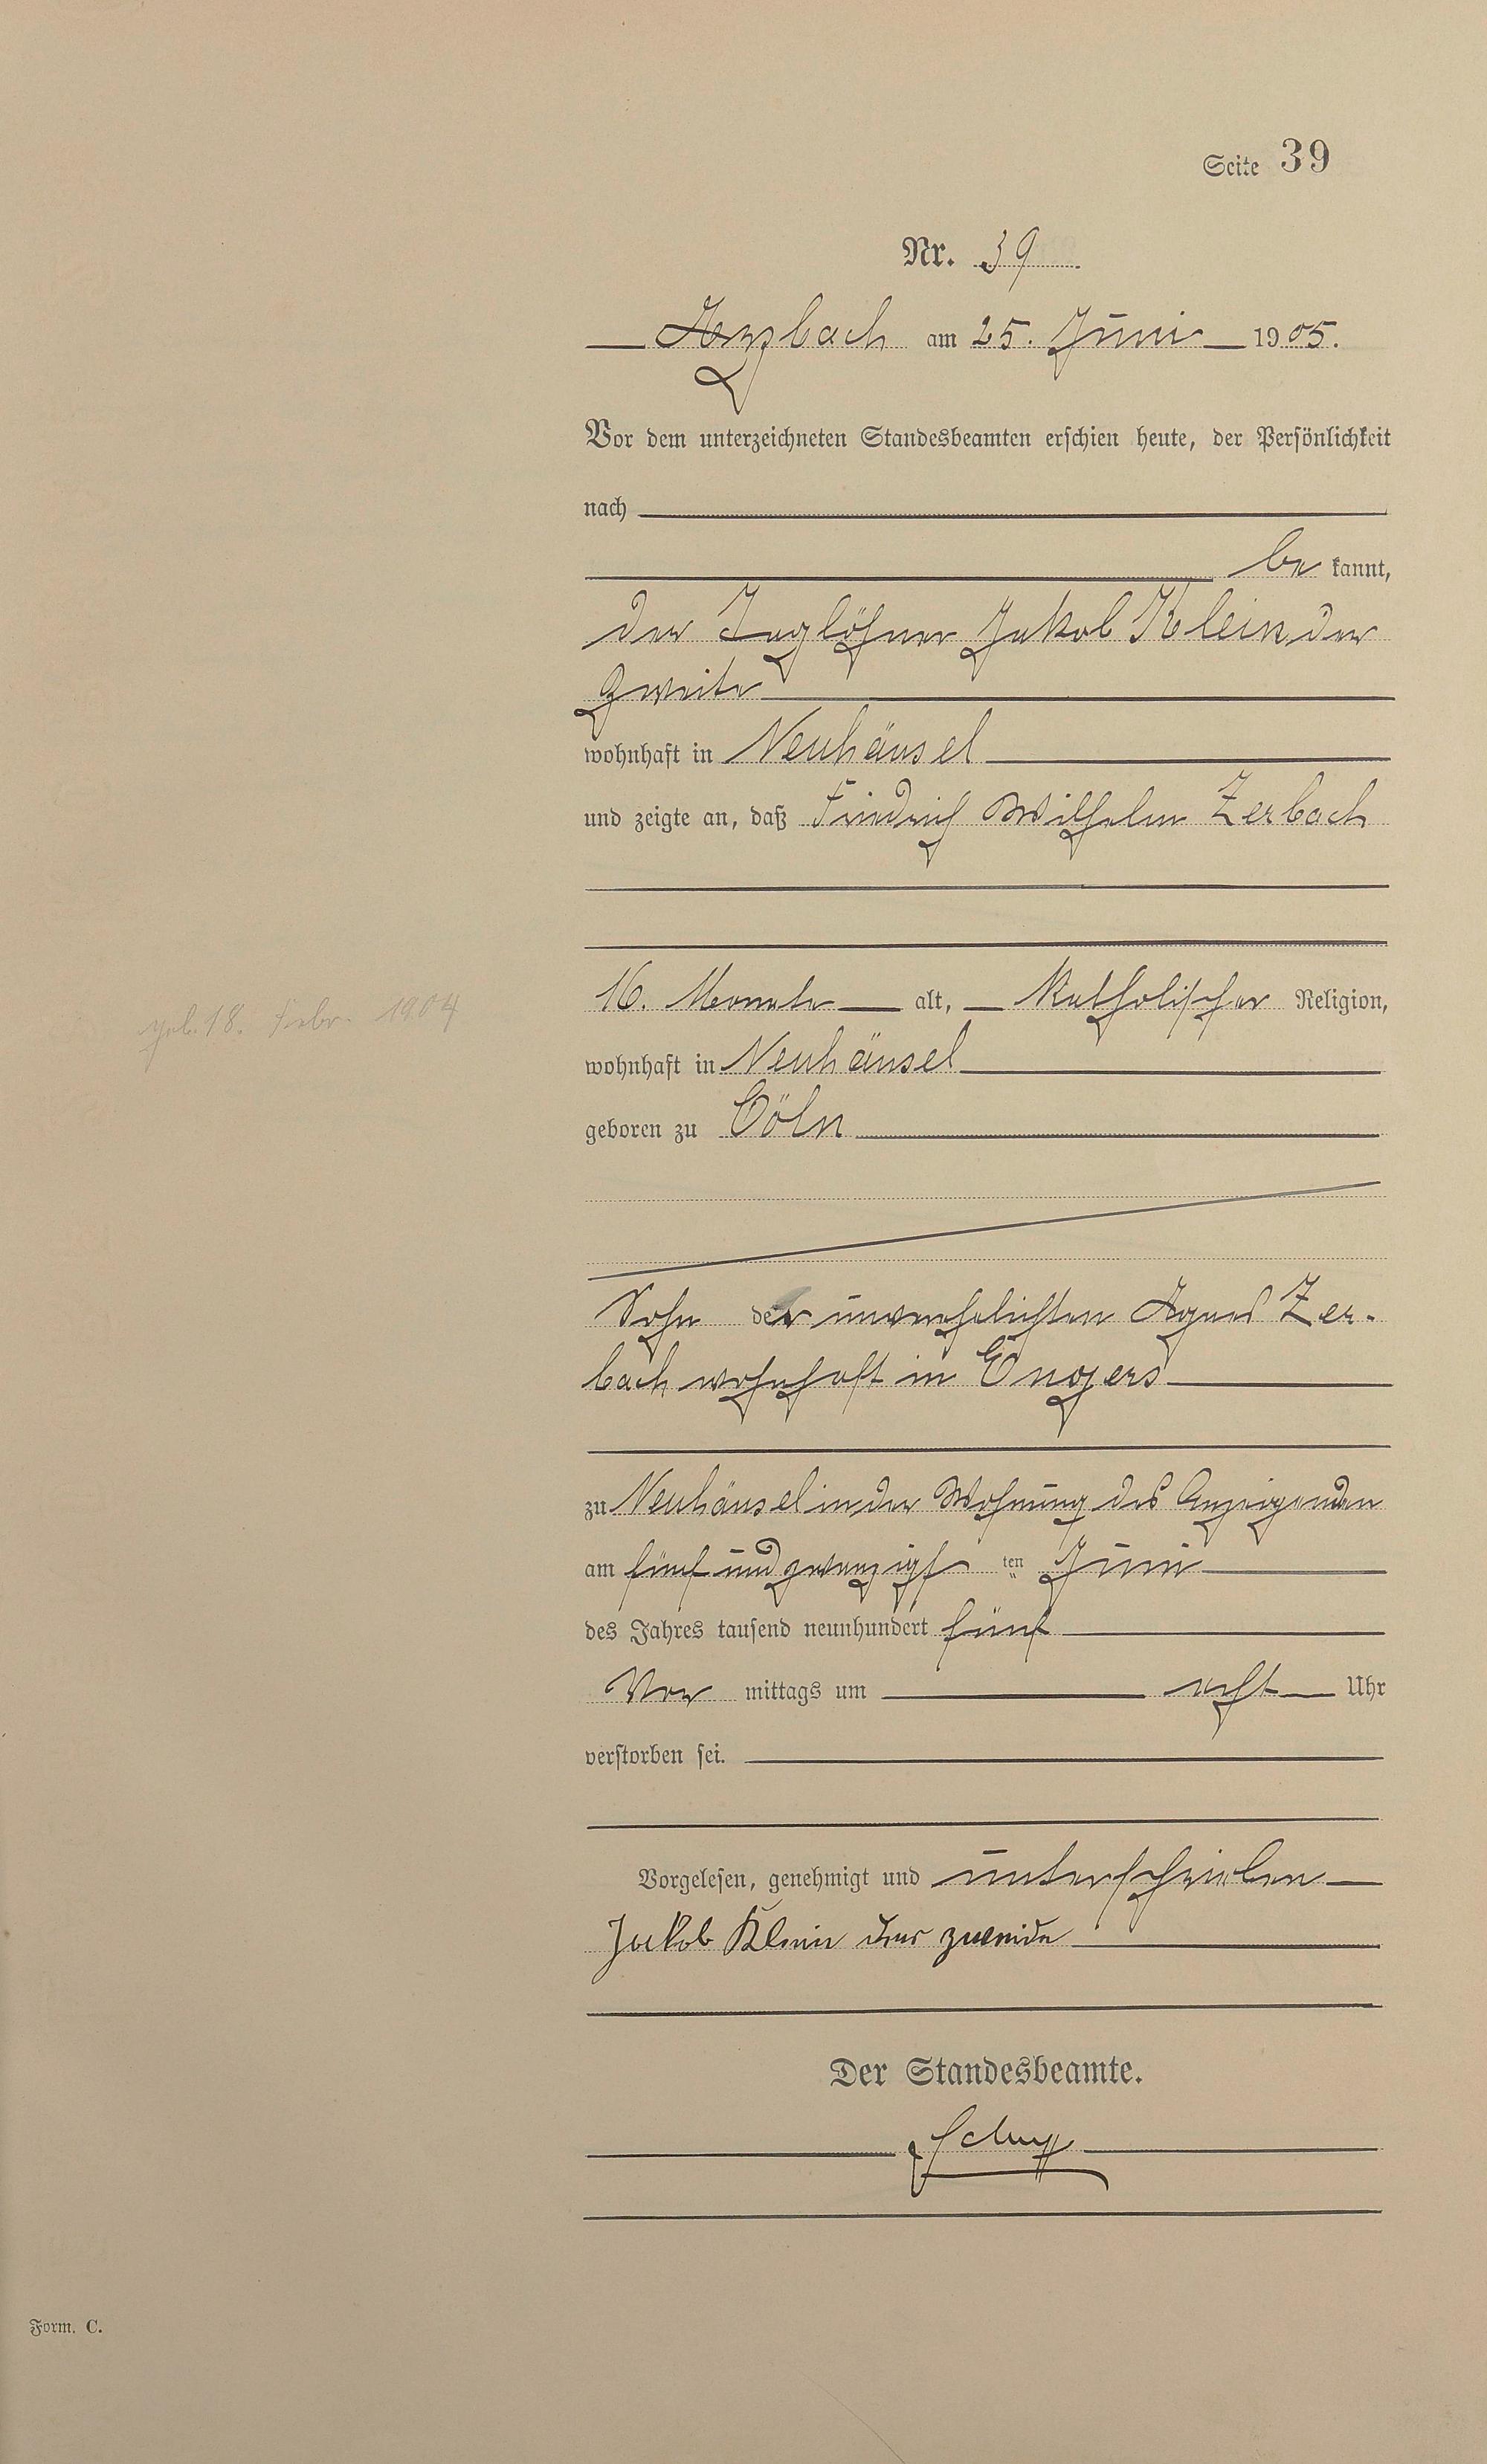 Seite 39
Nr. 39.
Arzbach am 25. Juni 1905.
Vor dem unterzeichneten Standesbeamten erschien heute, der Persönlichkeit
nach
be kannt,
der Taglöhner Jakob Klein der
zweite
wohnhaft in Neuhäusel
und zeigte an, daß Friedrich Wilhelm Zerbach
geb. 18. Febr. 1904
16. Monate alt, Katholischer Religion,
wohnhaft in Neuhäusel
geboren zu Cöln
Sohn der unverehelichten Agnes Zer-
bach wohnhaft in Engers
zu Neuhäusel in der Wohnung des Anzeigenden
am fünf und zwanzigsten Juni
des Jahres tausend neunhundert fünf
Vor mittags um acht Uhr
verstorben sei.
Vorgelesen, genehmigt und unterschrieben
Jakob Klein der zweite
Der Standesbeamte.
Form. C.